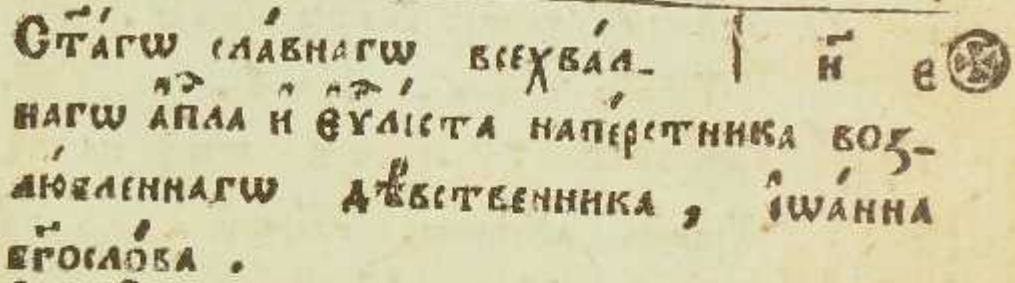 Ст҃а́гѡ сла́внагѡ всехва́л- | и҃ є
нагѡ а҆пⷭ҇ла и҆ є҆ѵⷢ҇лі́ста напе́рстника воз-
лю́бленнагѡ дѣ́вственника , і҆ѡа́нна
бг҃осло́ва .